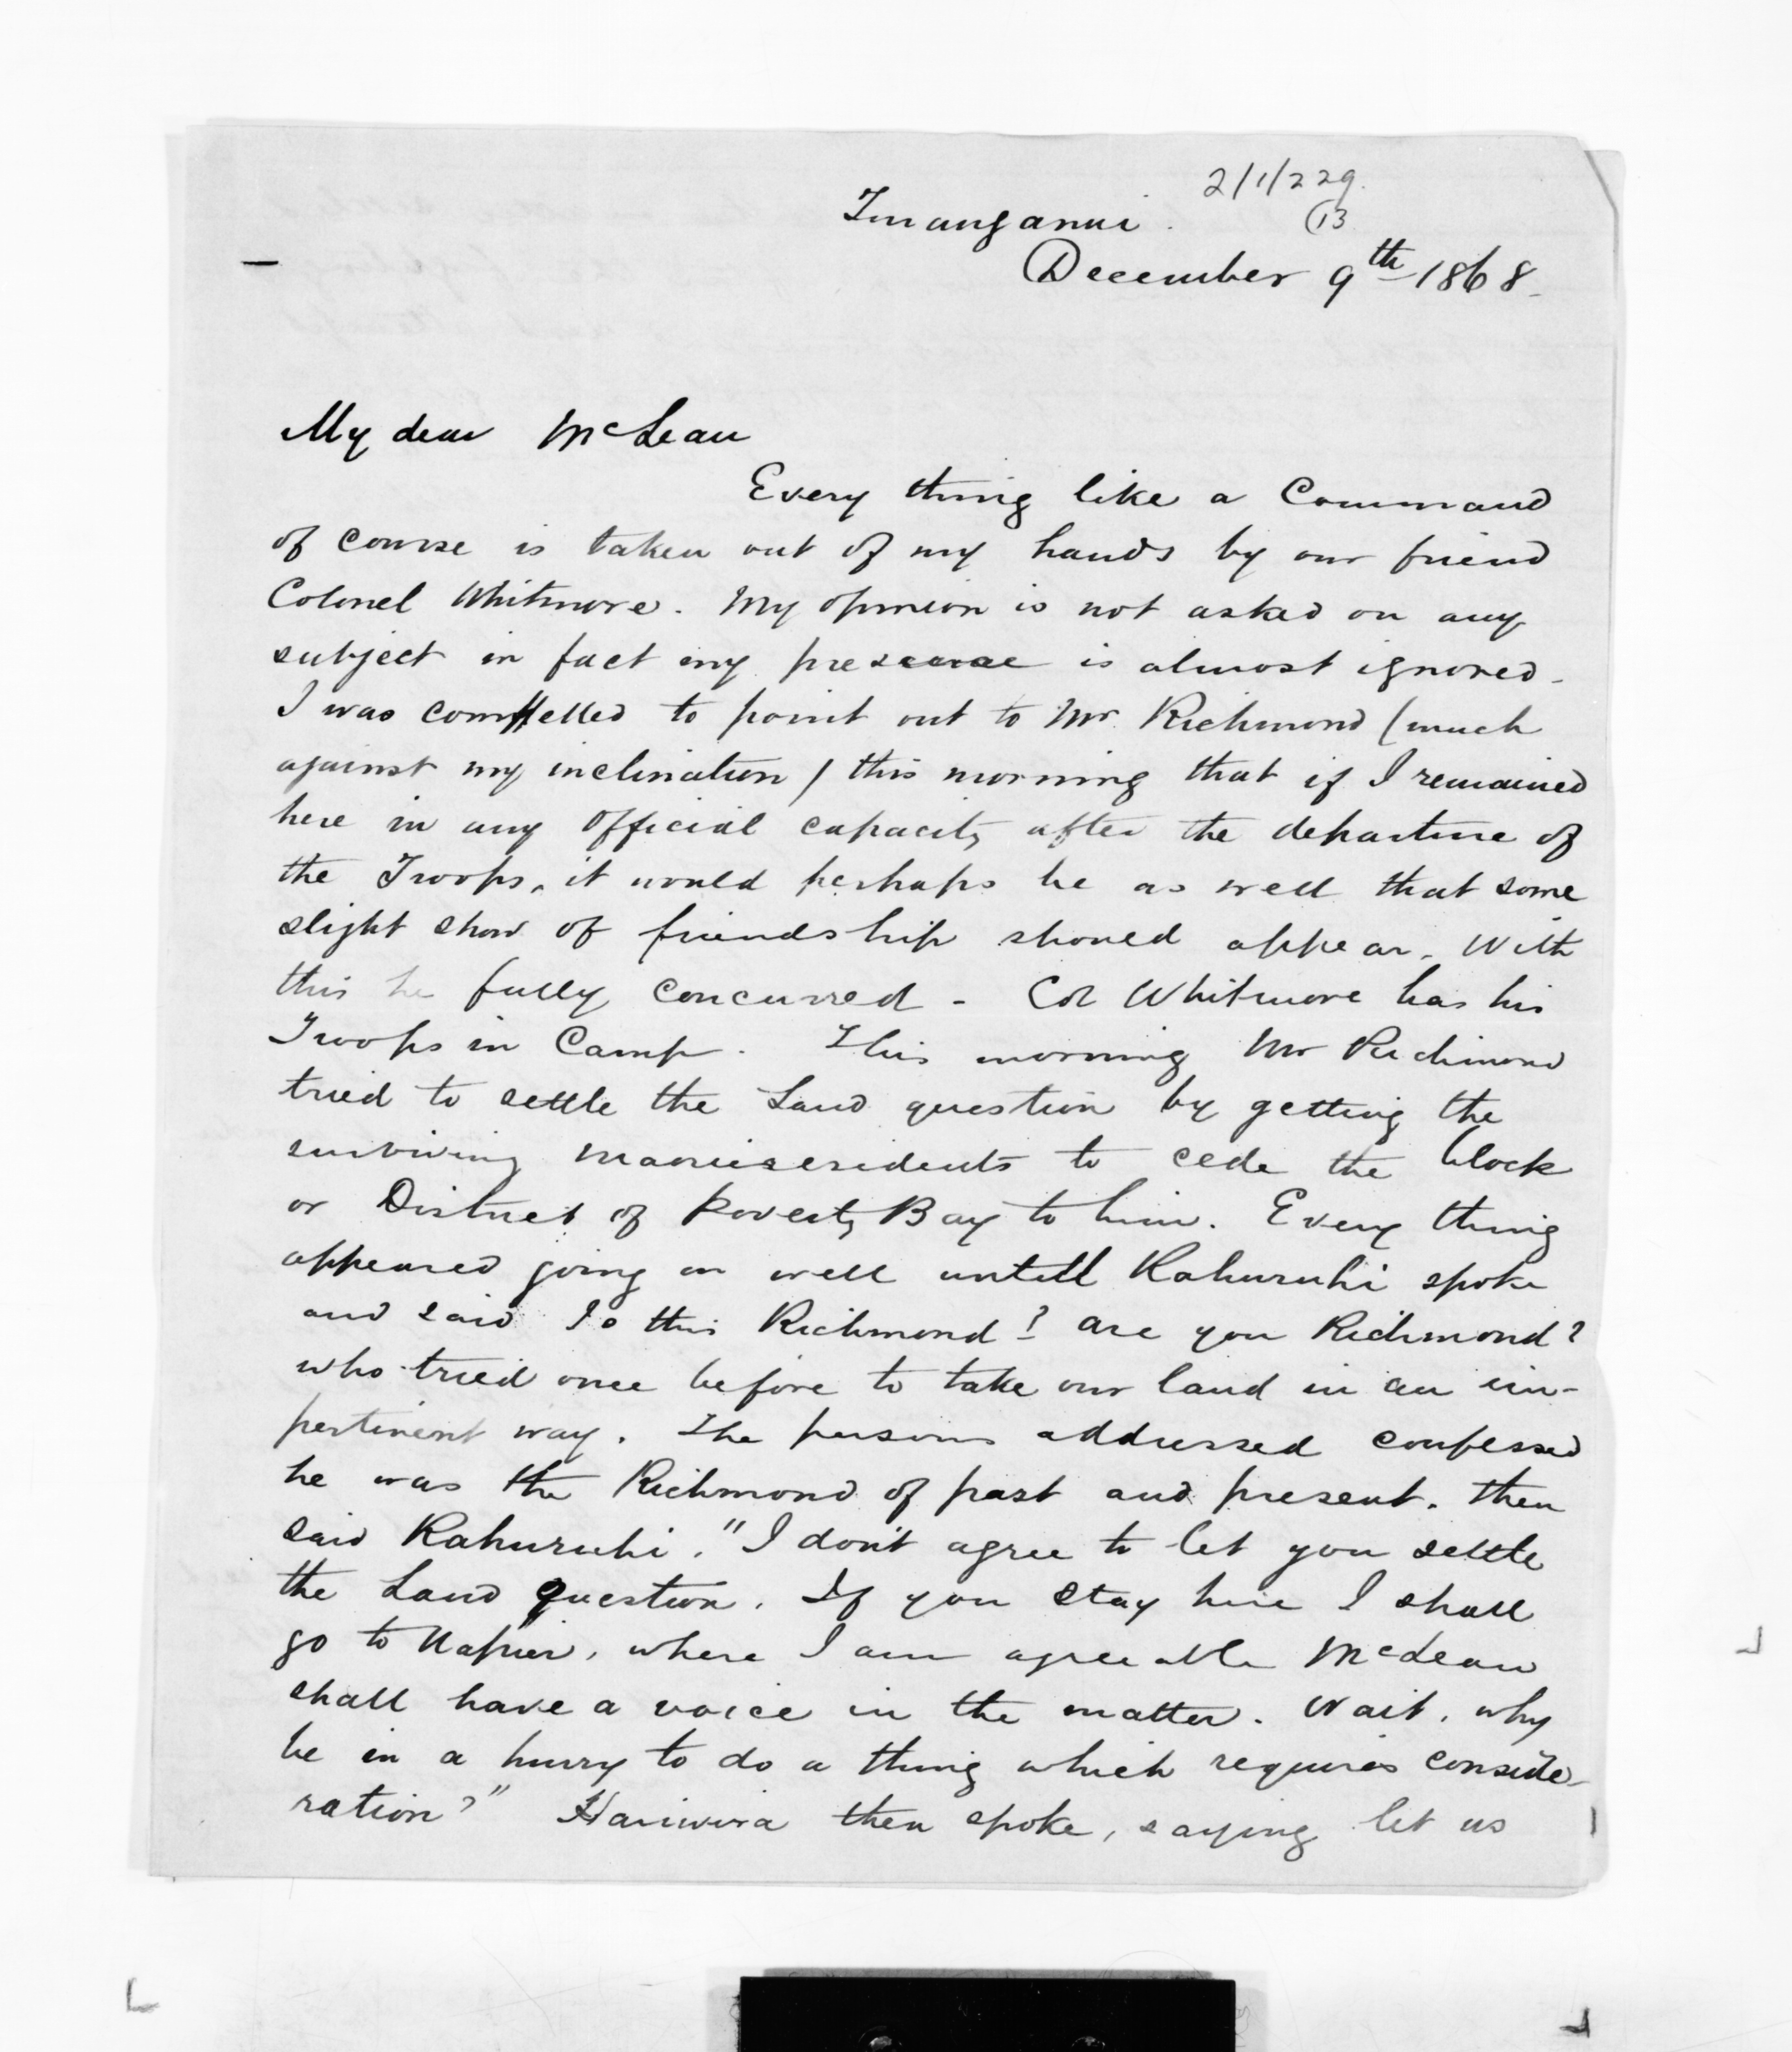 2/1/229.
Turanganui.
13
December 9th 1868.
My dear McLean
Every thing like a Command
of course is taken out of my hands by our friend
Colonel Whitmore. My opinion is not asked on any
subject in fact my presence is almost ignored.
I was compelled to point out to Mr. Richmond (much
against my inclination) this morning that if I remained
here in any Official capacity after the departure of
the Troops, it would perhaps be as well that some
slight show of friendship should appear. With
this he fully concurred - Col Whitmore has his
Troops in Camp. This morning Mr Richmond
tried to settle the Land question by getting the
surviving maori residents to cede the block
or District of Poverty Bay to him. Every thing
appeared going on well untill Kahuruhi spoke
and said Is this Richmond? are you Richmond?
who tried once before to take our land in an im-
pertinent way. The person addressed confessed
he was the Richmond of past and present. then
said Kahuruhi. "I don't agree to let you settle
the Land question. If you stay here I shall
go to Napier, where I am agreeable McLean
shall have a voice in the matter. Wait, why
be in a hurry to do a thing which requires conside-
ration?" Hariwira then spoke, saying let us